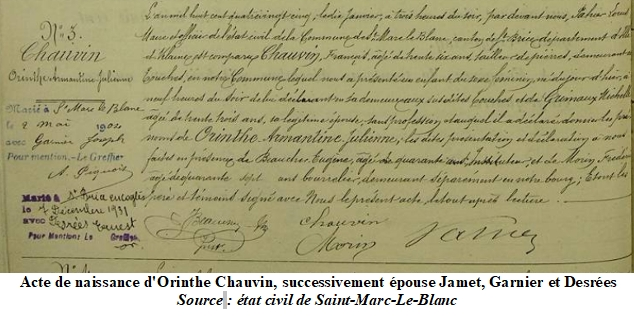 N° 5.
Chauvin
Orinthe Armantine Julienne
Marié à St Marc le Blanc
le 2 mai 1902
avec Garnier Joseph
Pour mention. - Le Greffier
Marié à St Brice en Coglès
le 7 Décembre 1931
avec Desrées Ernest
Pour Mention: Le Greffier
L'an mil huit cent quatre vingt cinq, le dix Janvier, à trois heures du soir, par devant nous,
Maire officier de l'état civil de la Commune de St Marc le Blanc, canton de St Brice, département d'Ille
et Vilaine, est comparu Chauvin, François, âgé de trente six ans, tailleur de pierres, demeurant à
en notre Commune lequel nous a présenté un enfant de sexe féminin, né du jour d'hier, à
neuf heures du soir de lui déclarant en sa demeure aux susdites et de Grimaux Michelle
âgée de trente huit ans, sa légitime épouse, sans profession, et auquel il a déclaré donner les pré-
noms de Orinthe Armantine Julienne; les dites présentation et déclaration à nous
faites en présence de Beaucher Eugène, âgé de quarante ans Instituteur, et de Morin Frédéric
âgé de quarante sept ans bourrelier, demeurant séparément en notre bourg; et ont les
père et témoins signé avec Nous le présent acte le tout après lecture.
Chauvin
Morin
Acte de naissance d'Orinthe Chauvin, successivement épouse Jamet, Garnier et Desrées
Source : état civil de Saint-Marc-Le-Blanc